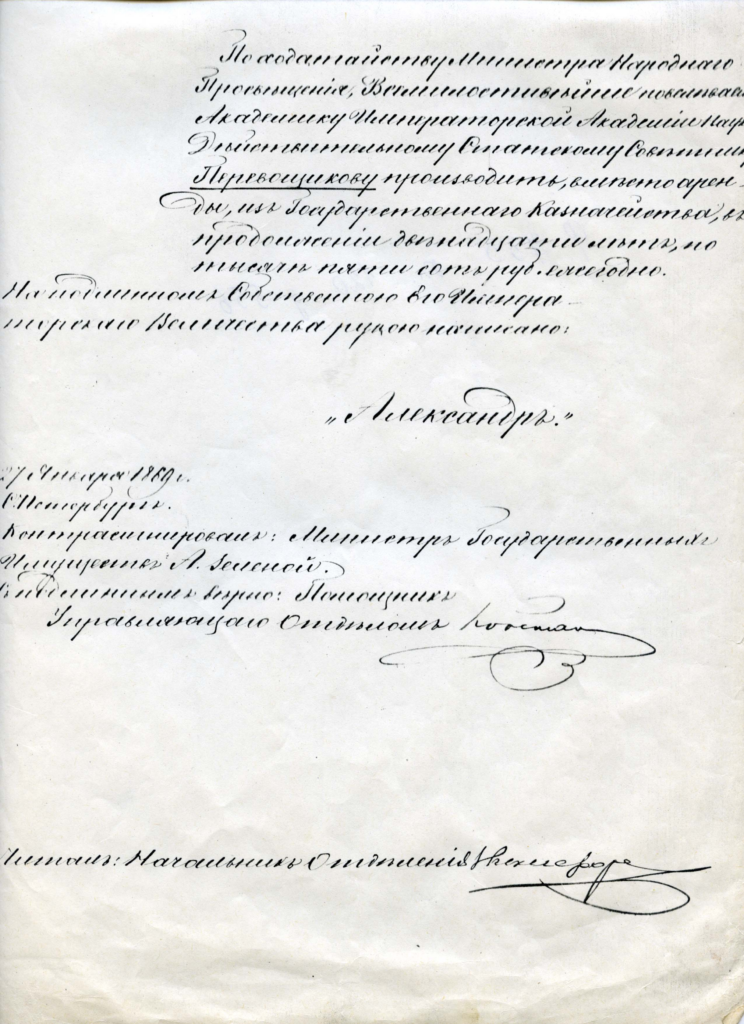 По ходатайству Министра Народнаго
Просвѣщенія, Всемилостивѣйше повелѣва
Академику Императорской Академіи Наук
Дѣйствительному Статскому Совѣтник
Перевощикову производить, вмѣсто арен-
ды, изъ Государственнаго Казначейства, въ
продолженіи двѣнадцати лѣтъ, по
тысячѣ пяти сотъ руб. ежегодно.
На подлинномъ Собственною Его Импера-
торскаго Величества рукою написано:
„Александръ."
27 Января 1869 г.
С.Петербургъ.
Контрасигнировалъ: Министръ Государственныхъ
Имуществъ А. Зеленой.
Съ подлиннымъ вѣрно: Помощникъ
Управляющаго Отдѣломъ
Читалъ: Начальникъ Отдѣленія